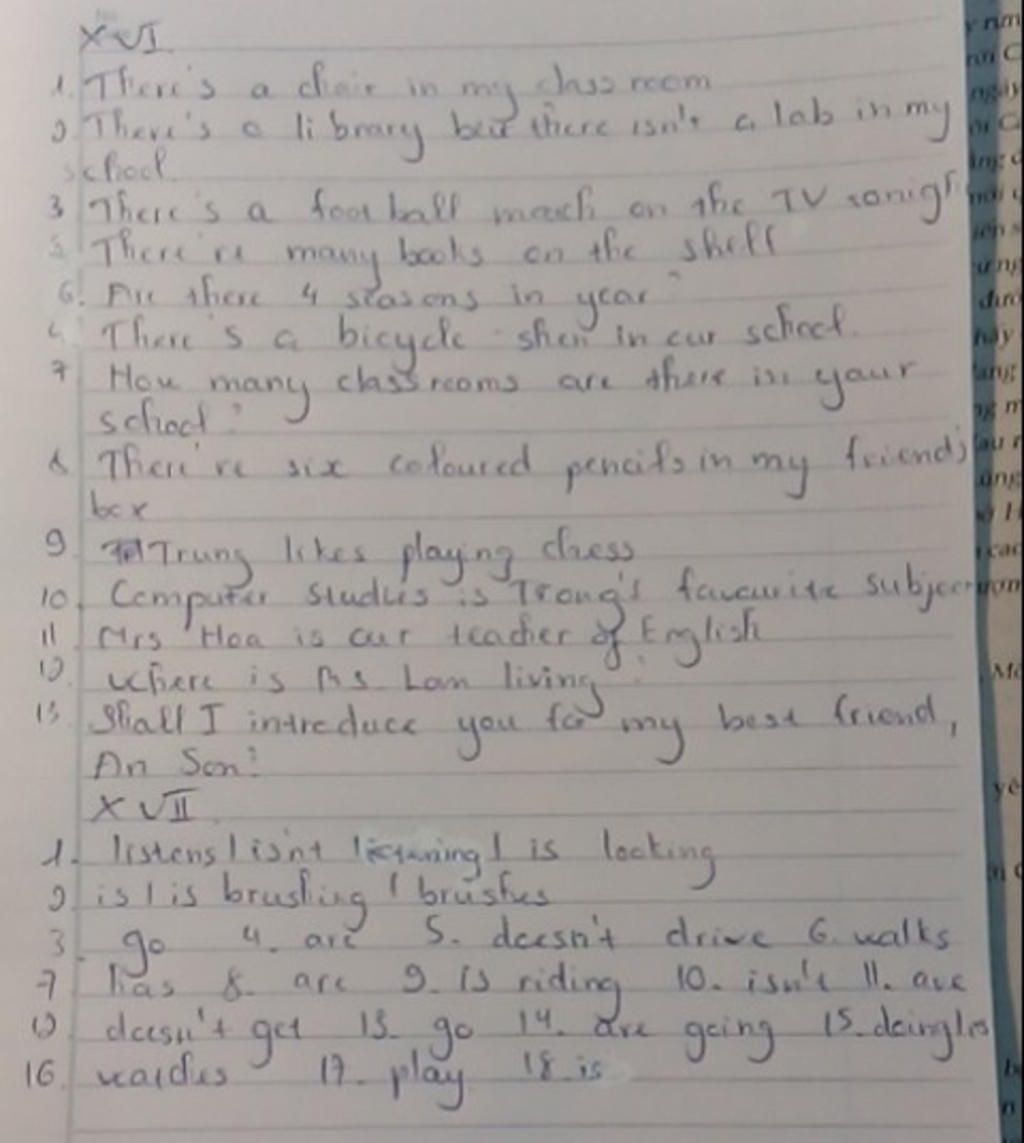 XVI
1. There's a chair in my classroom
2 There's a library but there isn't a lab in my
school
3 There's a football match on the TV tonigh
5 There're many books on the shelf
6. Are there 4 seasons in year?
4 There's a bicycle shed in our school.
7 How many classrooms are there in your
school?
8 There're six coloured pencils in my friend's
box
9 Trung likes playing chess
10. Computer studies is Trong's favourite subject
11 Mrs Hoa is our teacher of English
12. Where is Ms Lan living?
13 Shall I introduce you to my best friend,
An Son?
XVII
1. listens / isn't listening / is looking
2 is / is brushing / brushes
3. go 4. are 5. doesn't drive 6. walks
7 has 8. are 9. is riding 10. isn't 11. are
12 doesn't get 13. go 14. are going 15. doing
16. watches 17. play 18. is